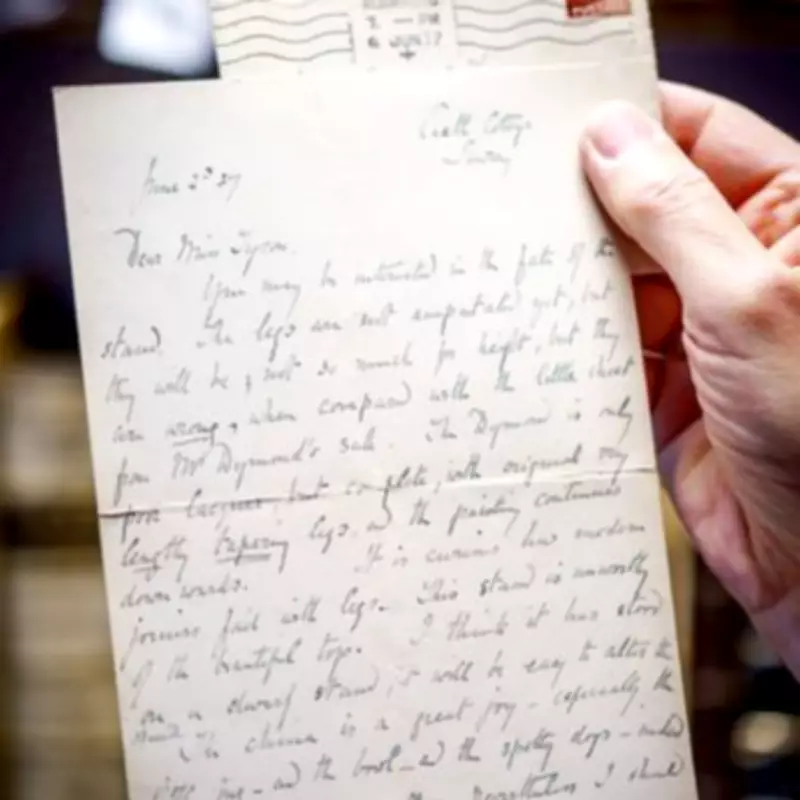 6 JUN 27
Castle Cottage
Sawrey
June 2d 27
Dear Miss Tyson.
You may be interested in the fate of the
stand. The legs are not amputated yet, but
they will be; not so much for height, but they
are wrong, when compared with the little chest
from Mr Dymond's sale. The Dymond is only
poor lacquer, but complete, with original very
lengthy tapering legs, and the painting continues
downwards. It is curious how modern
joiners fail with legs. This stand is unworthy
of the beautiful top. I think it has stood
on a dwarf stand, it will be easy to alter the
stand. The china is a great joy - especially the
jug - and the bowl - and the spotty dogs -
Nevertheless I should